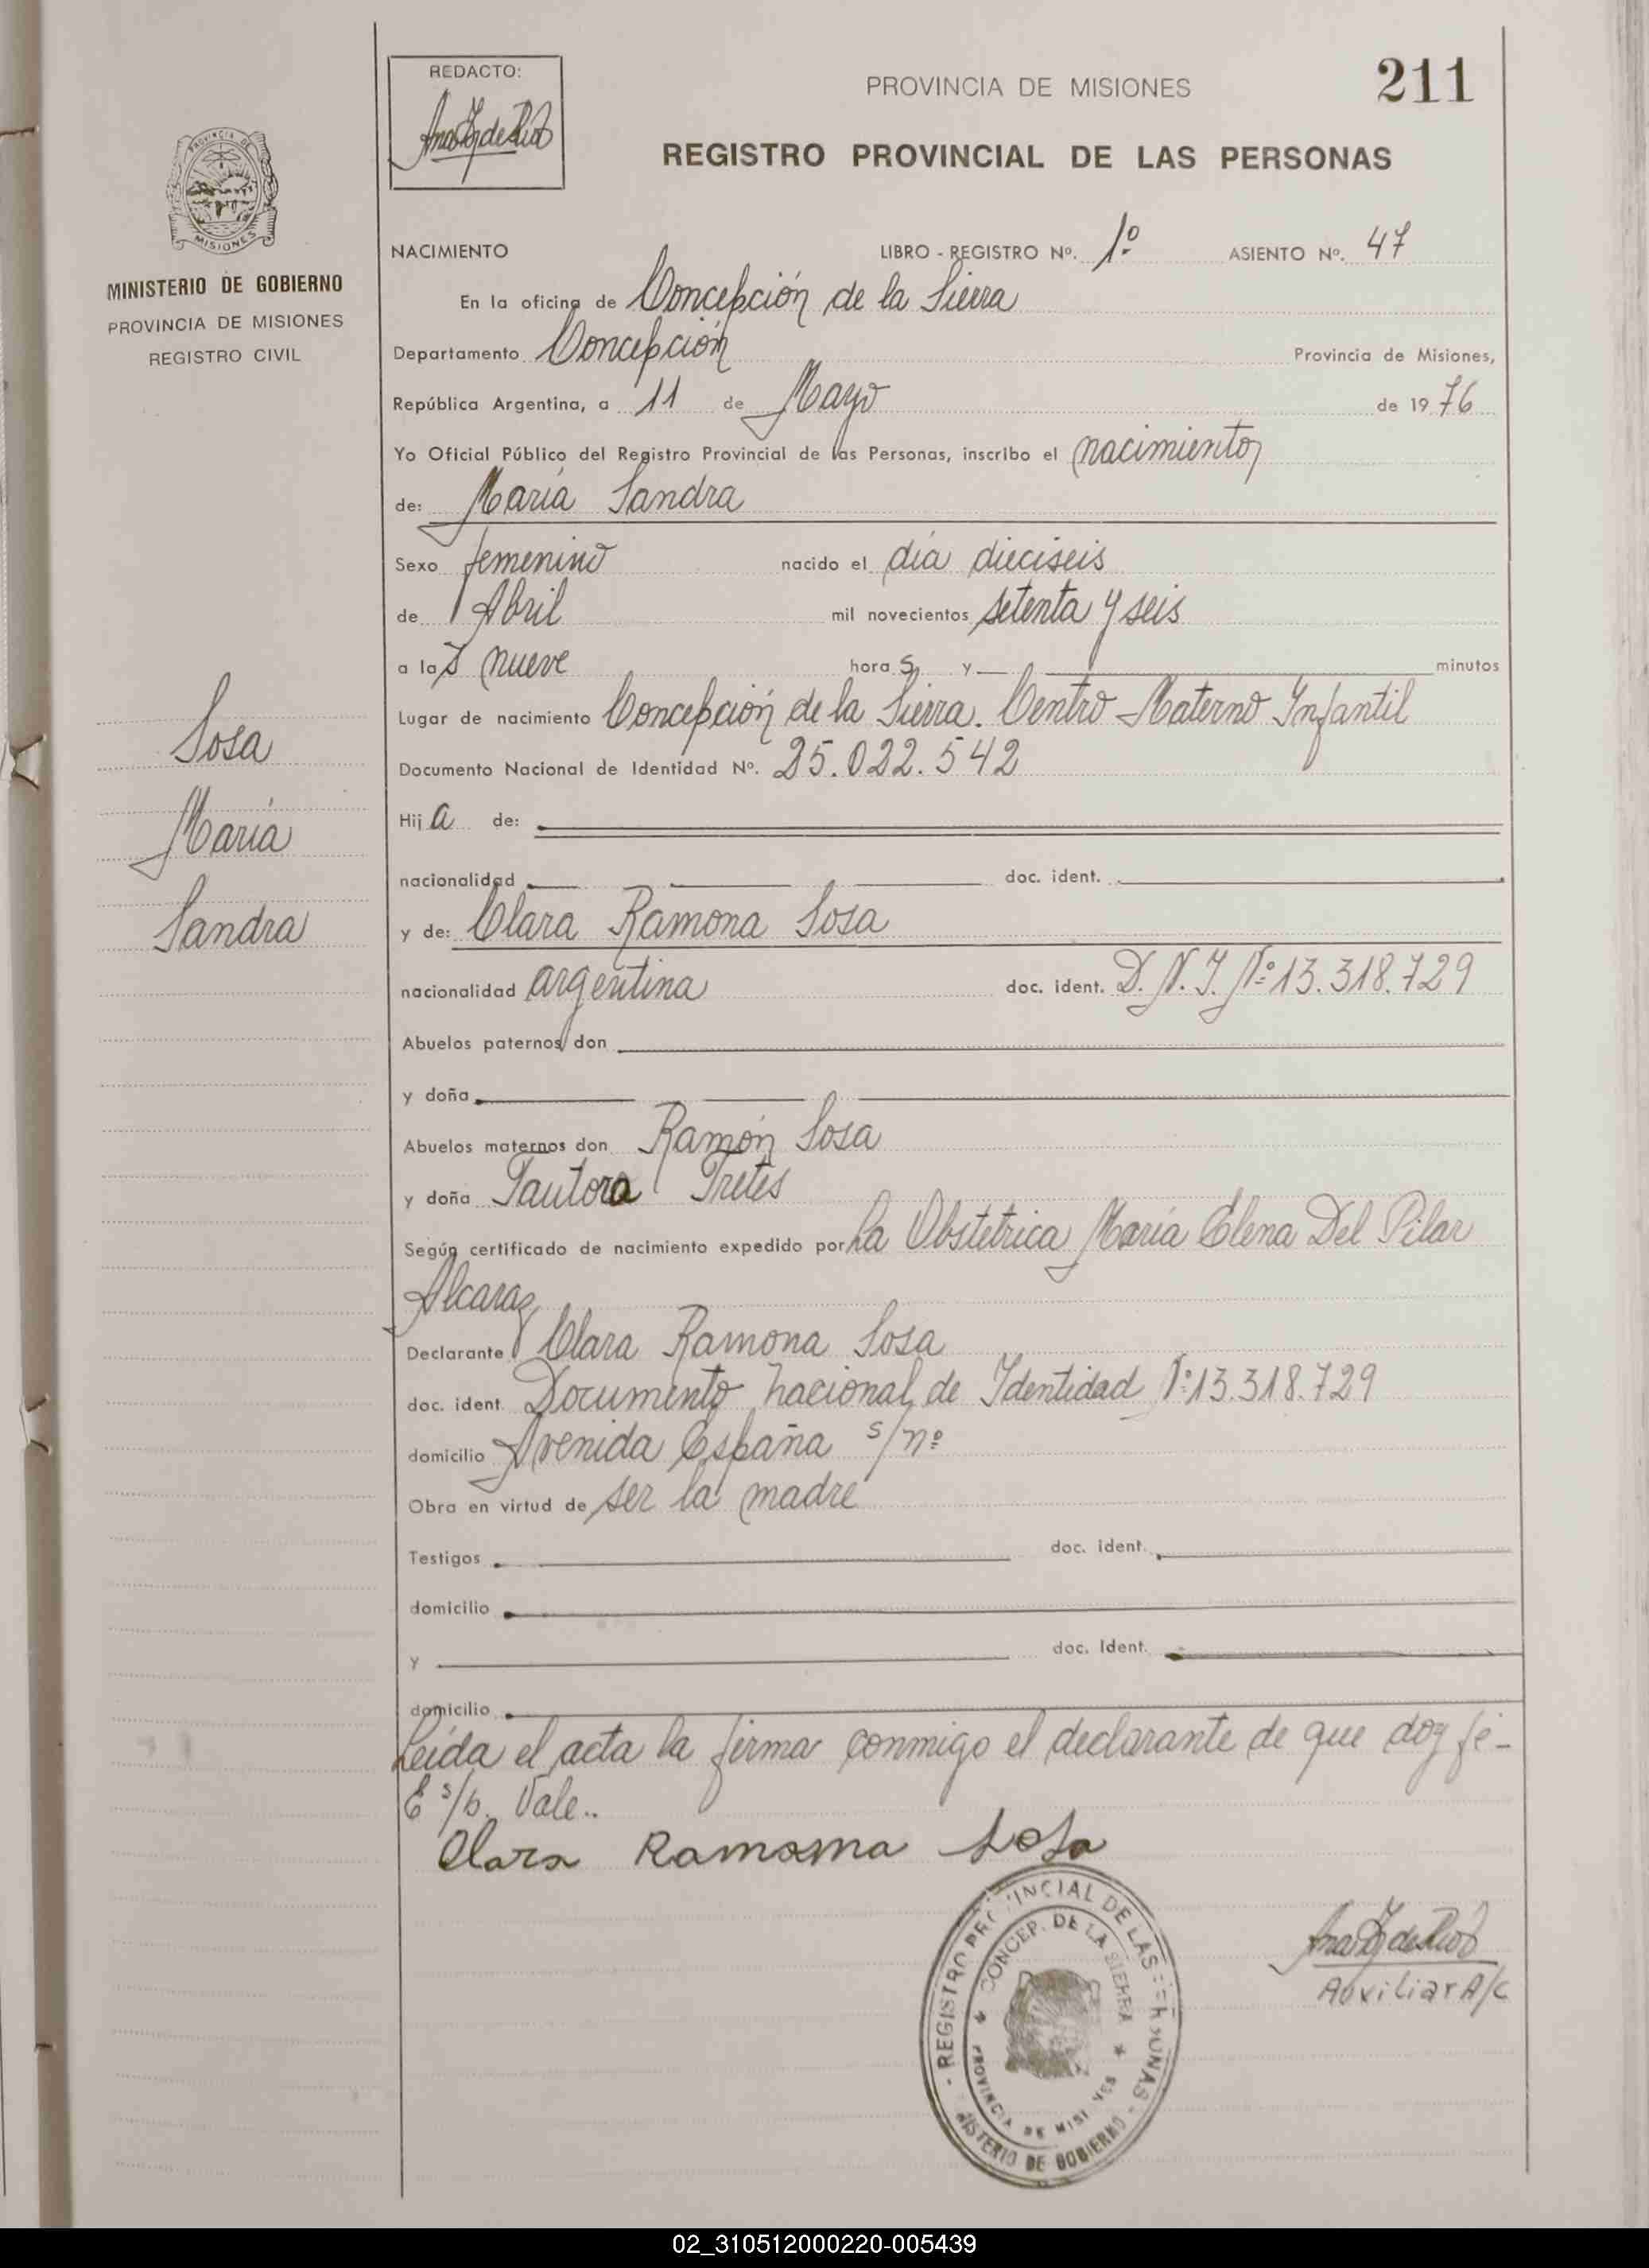 REDACTO:
PROVINCIA DE MISIONES
211
REGISTRO PROVINCIAL DE LAS PERSONAS
PROVINCIA DE
MISIONES
MINISTERIO DE GOBIERNO
PROVINCIA DE MISIONES
REGISTRO CIVIL
NACIMIENTO LIBRO - REGISTRO Nº. 1º ASIENTO Nº. 47
En la oficina de Concepción de la Sierra
Departamento Concepción Provincia de Misiones,
República Argentina, a 11 de Mayo de 19 76
Yo Oficial Público del Registro Provincial de las Personas, inscribo el nacimiento
de: María Sandra
Sexo femenino nacido el día dieciseis
de Abril mil novecientos setenta y seis
a las nueve horas y minutos
Lugar de nacimiento Concepción de la Sierra. Centro Materno Infantil
Documento Nacional de Identidad Nº. 25.022.542
Sosa
María
Sandra
Hija de:
nacionalidad doc. ident.
y de: Clara Ramona Sosa
nacionalidad argentina doc. ident. D.N.I. Nº 13.318.729
Abuelos paternos don
y doña
Abuelos maternos don Ramón Sosa
y doña Tretes
Según certificado de nacimiento expedido por La Obstetrica María Elena Del Pilar
Alcaraz
Declarante Clara Ramona Sosa
doc. ident. Documento nacional de Identidad Nº 13.318.729
domicilio Avenida España s/nº
Obra en virtud de ser la madre
Testigos doc. ident.
domicilio
y doc. Ident.
domicilio
Leída el acta la firma conmigo el declarante de que doy fé-
E s/b. Vale..
Clara Ramona Sosa
REGISTRO PROVINCIAL DE LAS PERSONAS
CONCEP. DE LA SIERRA
PROVINCIA DE MISIONES
MINISTERIO DE GOBIERNO
Auxiliar A/C
02_310512000220-005439